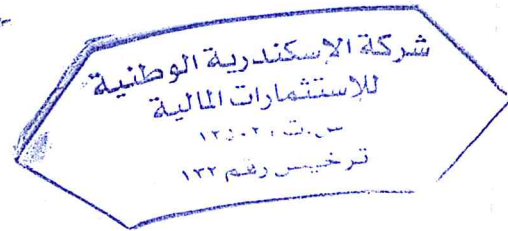 شركة الإسكندرية الوطنية
للاستثمارات المالية
س.ت
ترخيص رقم ١٣٢